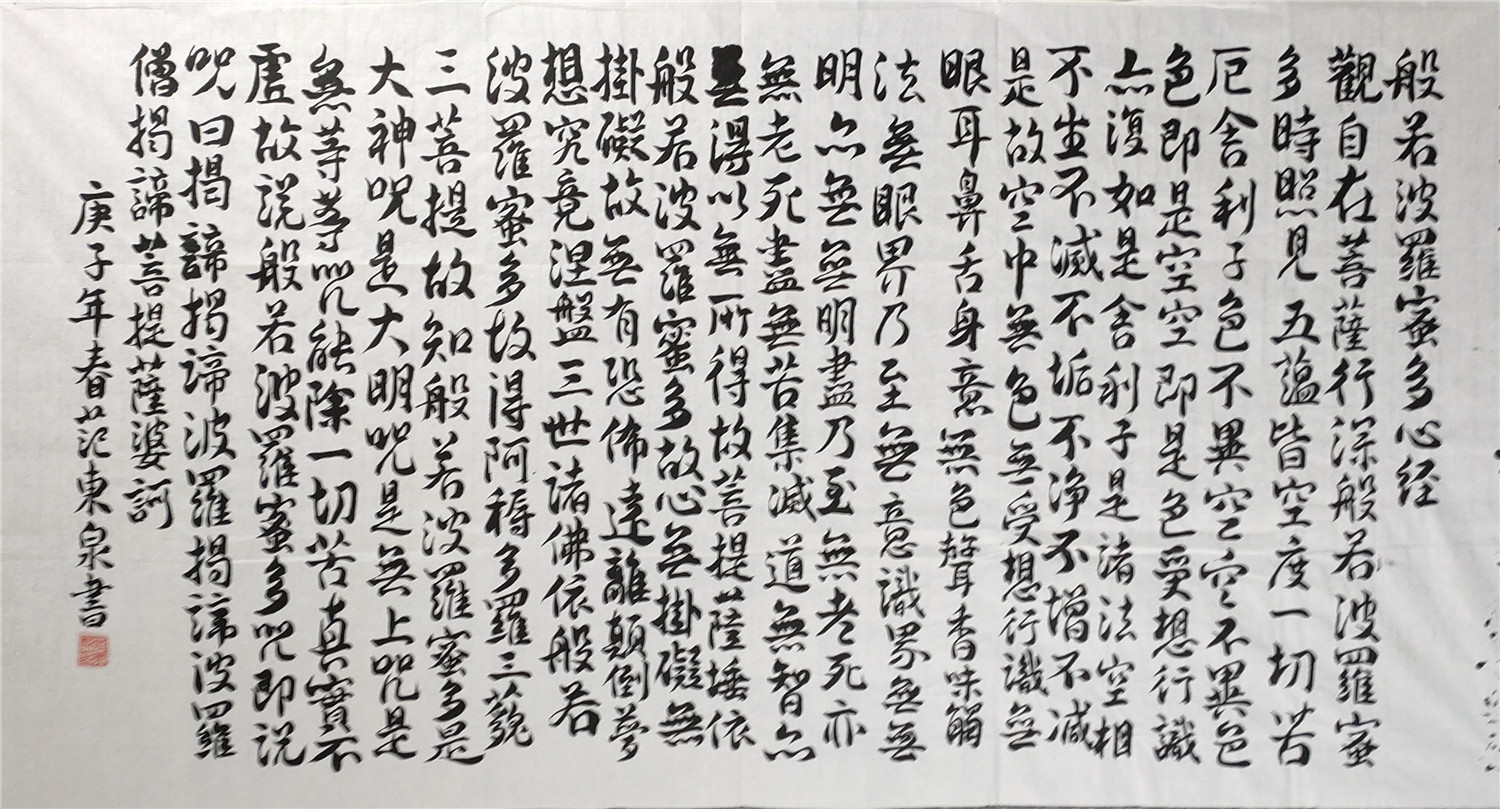 般若波羅蜜多心经
觀自在菩薩行深般若波羅蜜
多時照見五蕴皆空度一切苦
厄舍利子色不異空空不異色
色即是空空即是色受想行識
亦復如是舍利子是诸法空相
不生不滅不垢不净不增不减
是故空中無色无受想行識無
眼耳鼻舌身意無色聲香味觸
法無眼界乃至無意識界無無
明亦無無明盡乃至無老死亦
無老死盡無苦集滅道無智亦
無得以無所得故菩提薩埵依
般若波羅蜜多故心無掛礙無
掛礙故無有恐怖遠離顛倒夢
想究竟涅盤三世诸佛依般若
波羅蜜多故得阿耨多羅三藐
三菩提故知般若波羅蜜多是
大神呪是大明呪是無上咒是
無等等咒能除一切苦真實不
虛故说般若波羅蜜多咒即说
呪曰揭諦揭諦波羅揭諦波羅
僧揭諦菩提薩婆訶
庚子年春范東泉書